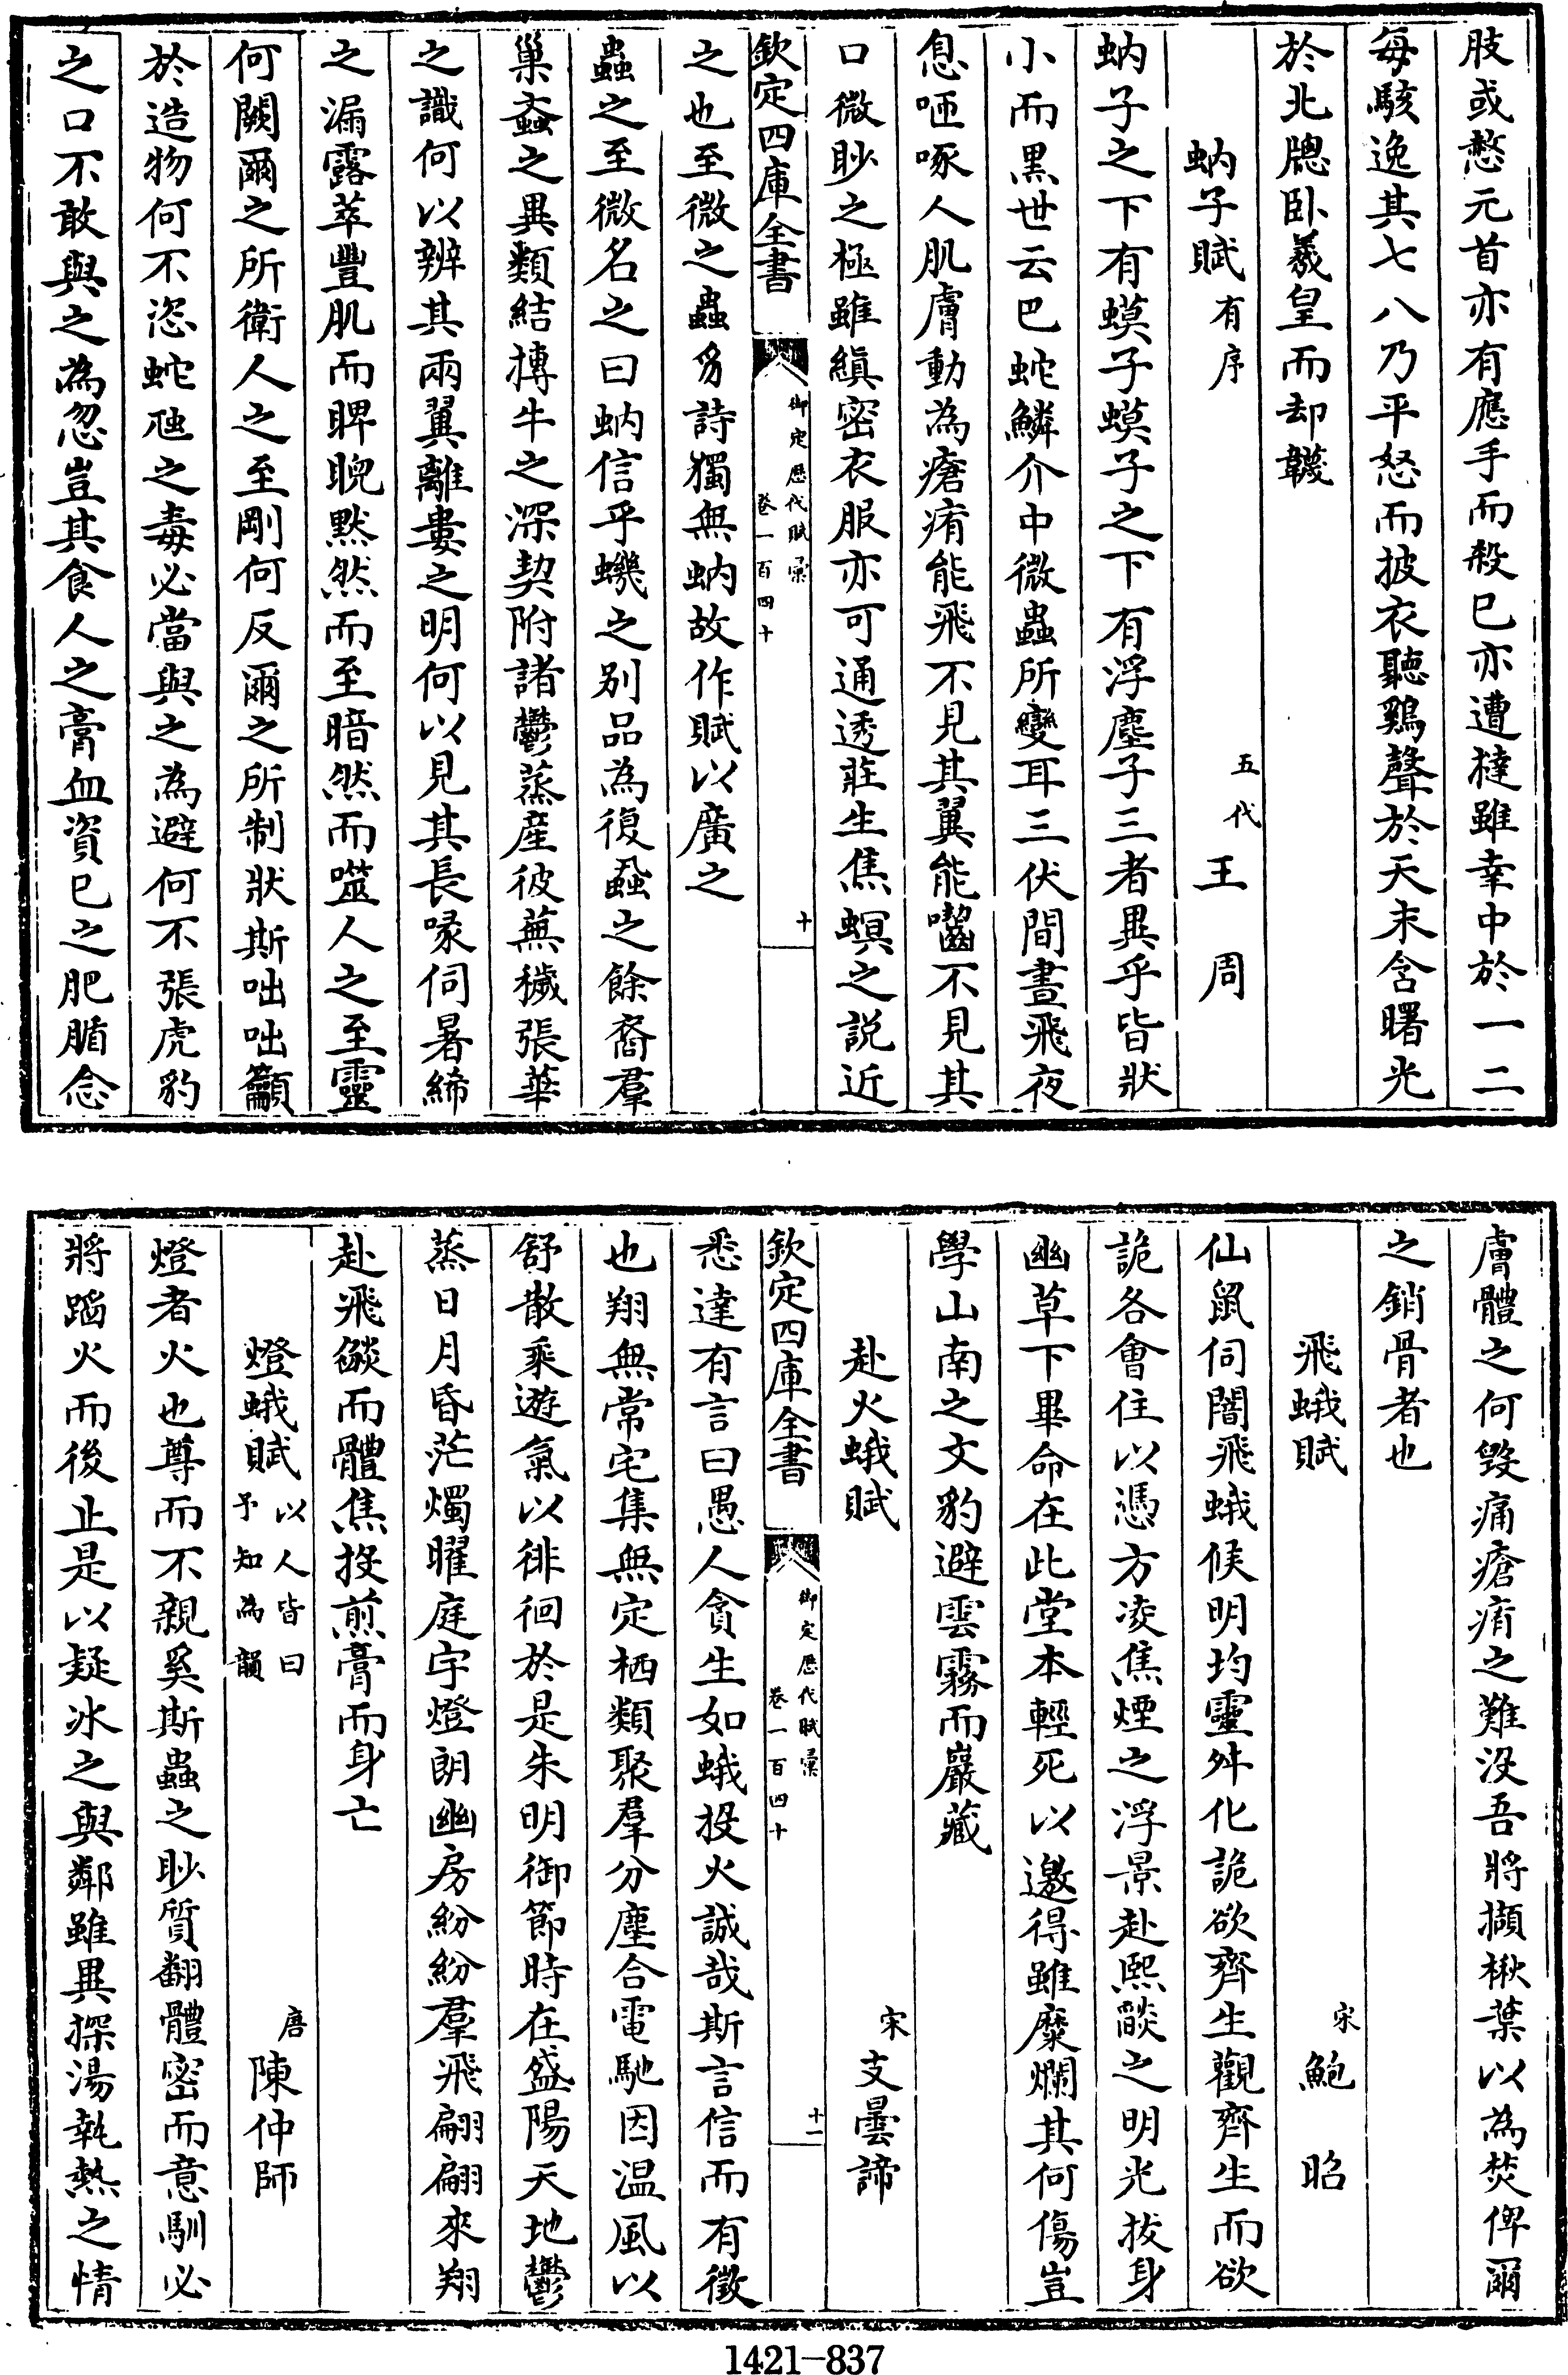 肢或憗元首亦有應手而殺巳亦遭撻雖幸中於一二
每駭逸其七八乃平怒而披衣聽鷄聲於天末含曙光
於北牕卧羲皇而却韤
蚋子賦有序
五代王周
蚋子之下有蟆子蟆子之下有浮塵子三者異乎皆狀
小而黑世云巴蛇鱗介中微蟲所變耳三伏間晝飛夜
息咂啄人肌膚動為瘡痏能飛不見其翼能囓不見其
口微眇之極雖縝密衣服亦可通透莊生焦螟之説近
欽定四庫全書
御定歷代賦彙
卷一百四十
十
之也至微之蟲多詩獨無蚋故作賦以廣之
蟲之至微名之曰蚋信乎蟣之别品為復蝨之餘裔羣
巢蝱之異類結摶牛之深契附諸鬱蒸産彼蕪穢張華
之識何以辨其兩翼離婁之明何以見其長喙伺暑絺
之漏露萃豐肌而睥睨黙然而至暗然而噬人之至靈
何闕爾之所衛人之至剛何反爾之所制狀斯咄咄籲
於造物何不恣蛇虺之毒必當與之為避何不張虎豹
之口不敢與之為忽豈其食人之膏血資巳之肥腯念
膚體之何毀痛瘡痏之難没吾將擷楸葉以為焚俾爾
之銷骨者也
飛蛾賦
宋鮑昭
仙鼠伺闇飛蛾候明均靈舛化詭欲齊生觀齊生而欲
詭各會住以憑方凌焦煙之浮景赴熙燄之明光拔身
幽草下畢命在此堂本輕死以邀得雖糜爛其何傷豈
學山南之文豹避雲霧而巖藏
赴火蛾賦
宋支曇諦
欽定四庫全書
御定歷代賦彙
卷一百四十
十一
悉達有言曰愚人貪生如蛾投火誠哉斯言信而有徵
也翔無常宅集無定栖類聚羣分塵合電馳因温風以
舒散乘遊氣以徘徊於是朱明御節時在盛陽天地鬱
蒸日月昏茫燭曜庭宇燈朗幽房紛紛羣飛翩翩來翔
赴飛燄而體焦投煎膏而身亡
燈蛾賦以人皆曰予知為韻
唐陳仲師
燈者火也尊而不親奚斯蟲之眇質翻體密而意馴必
將蹈火而後止是以疑冰之與鄰雖異探湯執熱之情
1421-837